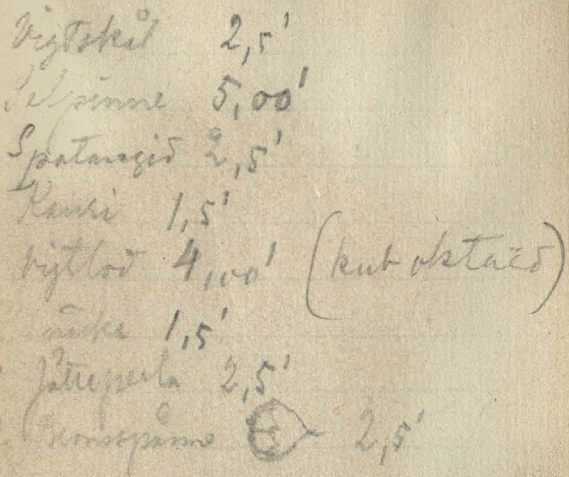 Vigtskål 2,5'
Selspänne 5,00'
Spatangid 2,5'
Kauri 1,5'
Vigtlod 4,00' (kuboktaëd)
1,5'
Jätteperla 2,5'
2,5'